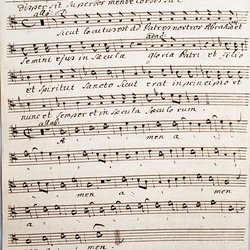 dispersit superbos mente cordis sui
allo
Sicut locutus est ad Patres nostros Abraham et
Semini ejus in sæcula gloria Patri et Filio
et Spiritui Sancto Sicut erat in principio et
nunc et semper et in sæcula sæculo rum.
allo
A men
men a men
a men